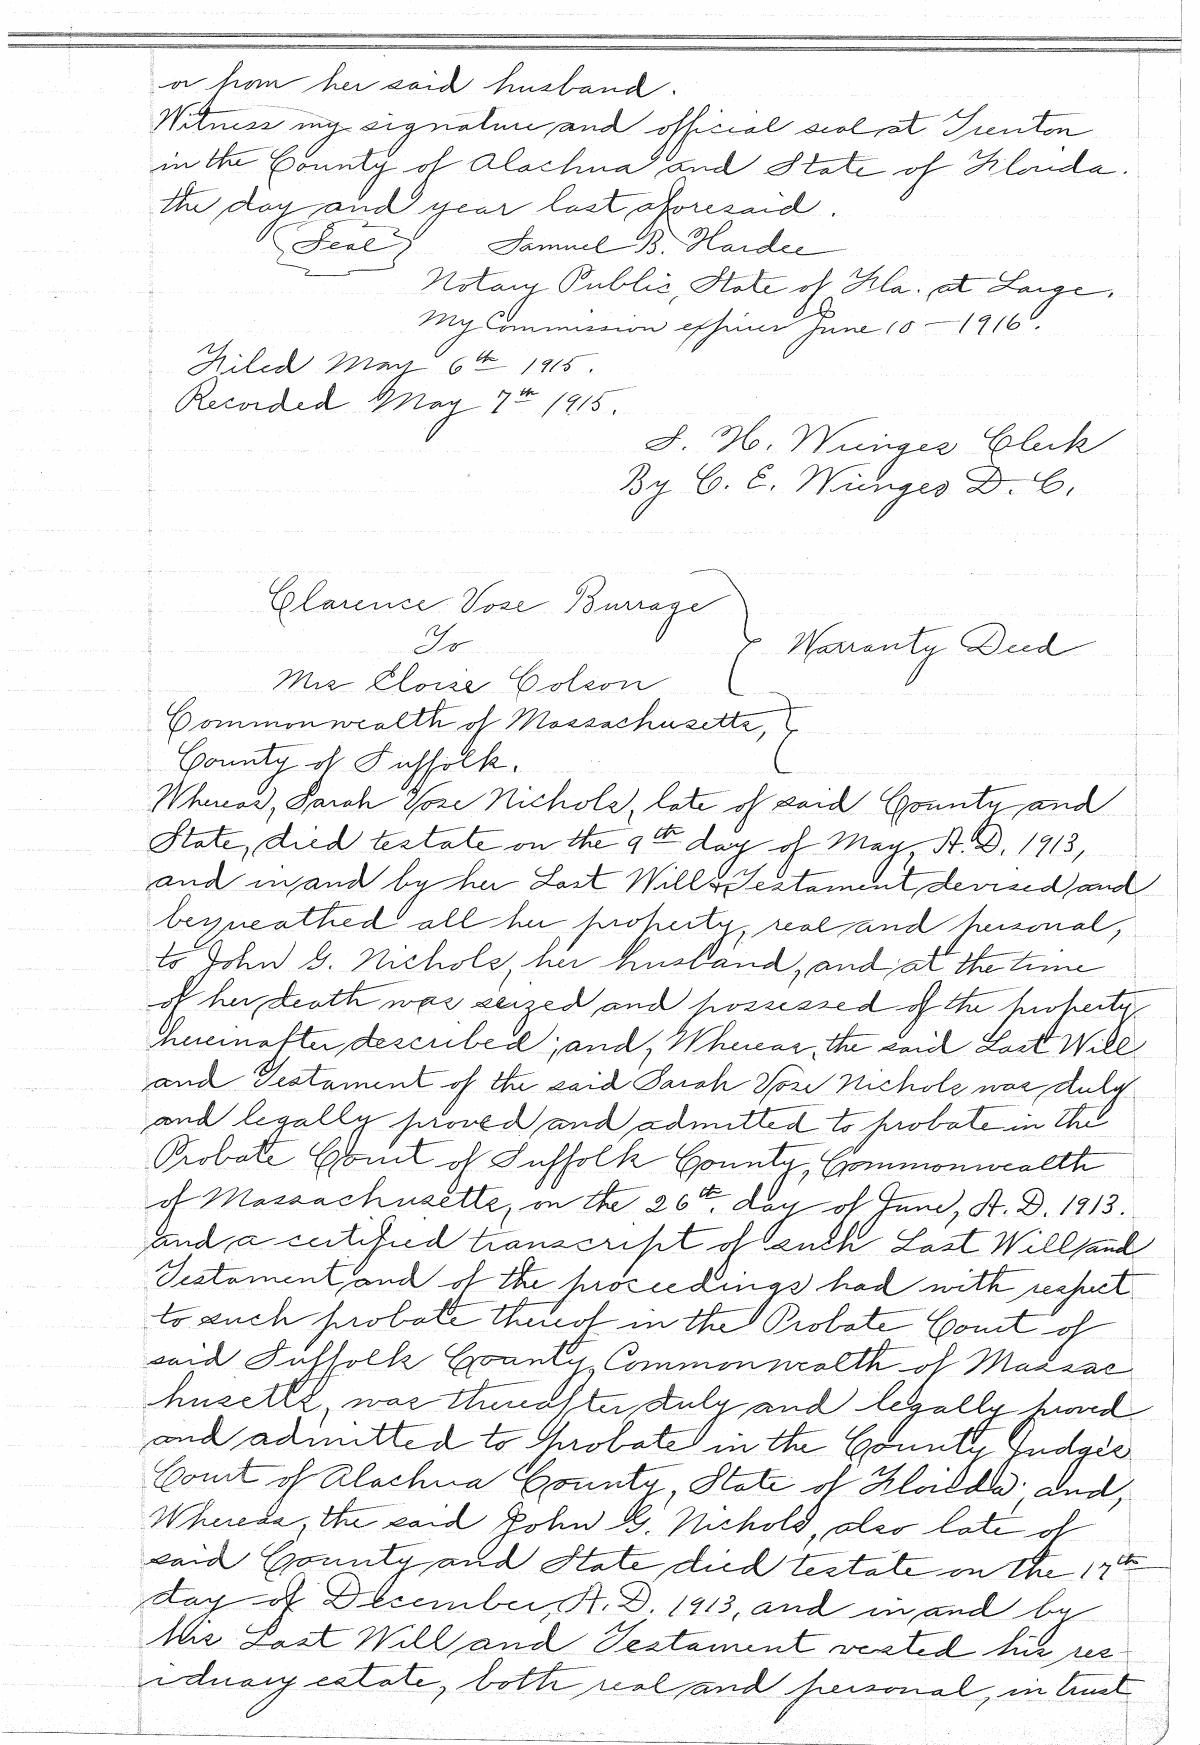 or from her said husband.
Witness my signature and official seal at Trenton
in the County of Alachua and State of Florida.
the day and year last aforesaid.
(Seal) Samuel B. Hardee
Notary Public, State of Fla. at Large.
My Commission expires June 10 - 1916.
Filed May 6th 1915.
Recorded May 7th 1915.
S. H. Wienges Clerk
By C. E. Wienges D. C.
Clarence Vose Burrage
To
Warranty Deed
Mrs Eloise Colson
Commonwealth of Massachusetts,
County of Suffolk.
Whereas, Sarah Vose Nichols, late of said County and
State, died testate on the 9th day of May, A.D. 1913,
and in and by her Last Will & Testament devised and
bequeathed all her property, real and personal,
to John G. Nichols, her husband, and at the time
of her death was seized and possessed of the property
hereinafter described; and, Whereas, the said Last Will
and Testament of the said Sarah Vose Nichols was duly
and legally proved and admitted to probate in the
Probate Court of Suffolk County, Commonwealth
of Massachusetts, on the 26th. day of June, A.D. 1913.
and a certified transcript of such Last Will and
Testament and of the proceedings had with respect
to such probate thereof in the Probate Court of
said Suffolk County, Commonwealth of Massac
husetts, was thereafter duly and legally proved
and admitted to probate in the County Judge's
Court of Alachua County, State of Florida; and,
Whereas, the said John G. Nichols, also late of
said County and State died testate on the 17th
day of December, A.D. 1913, and in and by
his Last Will and Testament vested his res
iduary estate, both real and personal, in trust